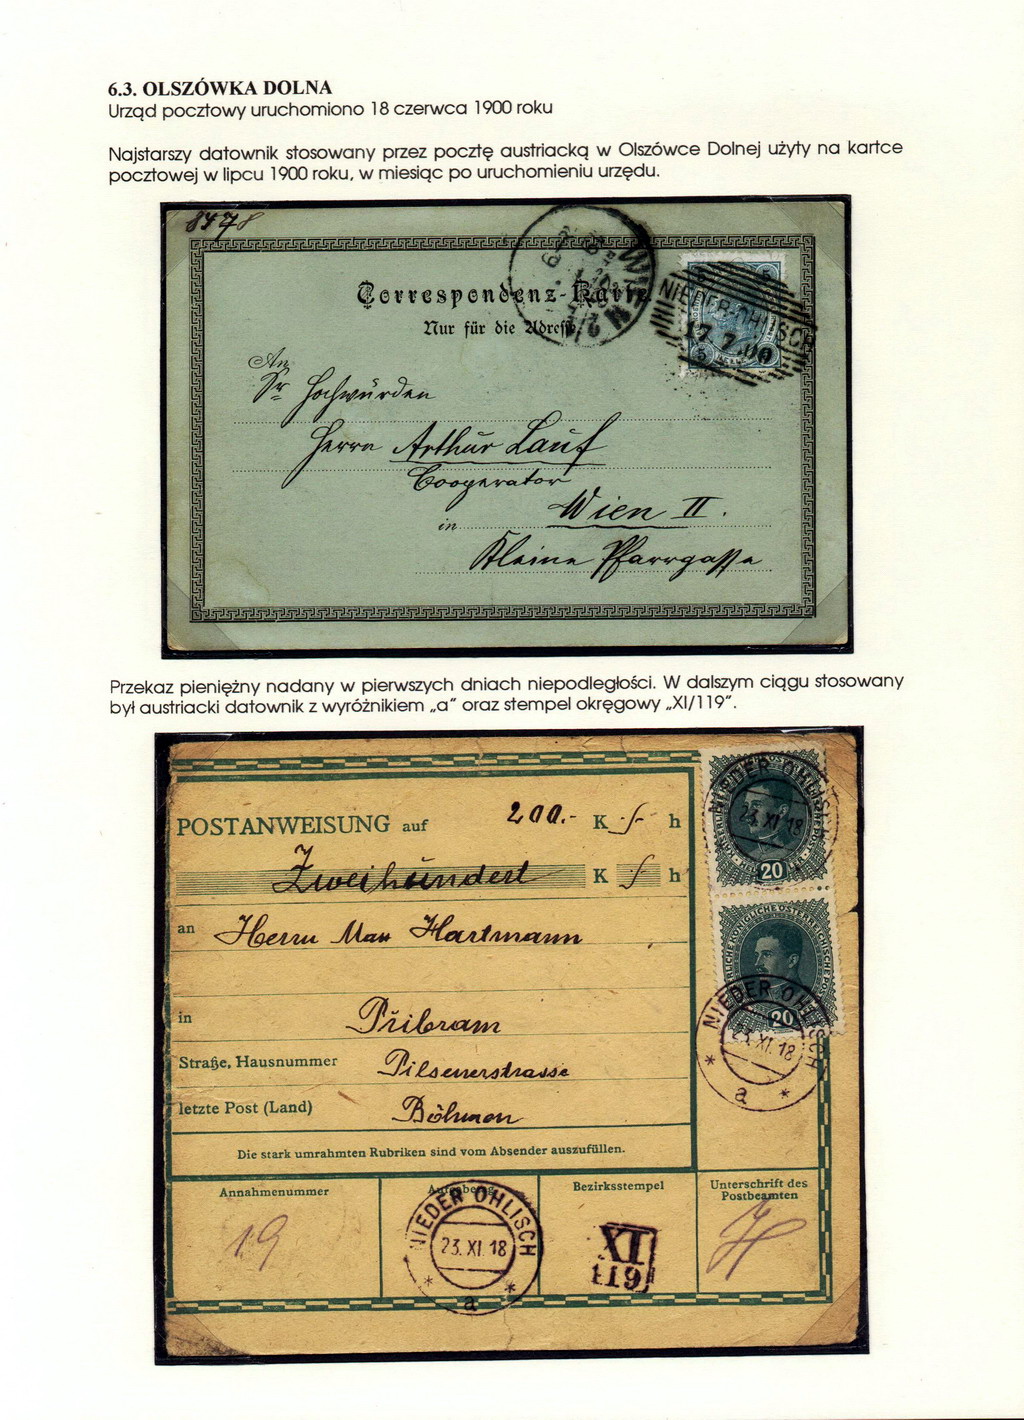 6.3. OLSZÓWKA DOLNA
Urząd pocztowy uruchomiono 18 czerwca 1900 roku
Najstarszy datownik stosowany przez pocztę austriacką w Olszówce Dolnej użyty na kartce
pocztowej w lipcu 1900 roku, w miesiąc po uruchomieniu urzędu.
8478
Correspondenz-Karte.
WIEN
Nur für die Adresse
5 5
NIEDER-OHLISCH
17 7.00
5
An
Sr Hochwürden
Herrn Arthur Lauf
Cooperator
in Wien II.
Kleine Pfarrgasse
Przekaz pieniężny nadany w pierwszych dniach niepodległości. W dalszym ciągu stosowany
był austriacki datownik z wyróżnikiem „a” oraz stempel okręgowy „XI/119”.
POSTANWEISUNG auf 200.- K h
Zweihundert K h
an Herrn Max Hartmann
in Přibram
Straße, Hausnummer Pilsenerstrasse
letzte Post (Land) Böhmen
Die stark umrahmten Rubriken sind vom Absender auszufüllen.
NIEDER OHLISCH
23.XI.18
20
KAISERLICHE KÖNIGLICHE ÖSTERREICHISCHE POST
20
NIEDER OHLISCH
23.XI.18
* a *
Annahmenummer
19
Aufgabe
NIEDER OHLISCH
23.XI.18
* a *
Bezirksstempel
XI
119
Unterschrift des
Postbeamten